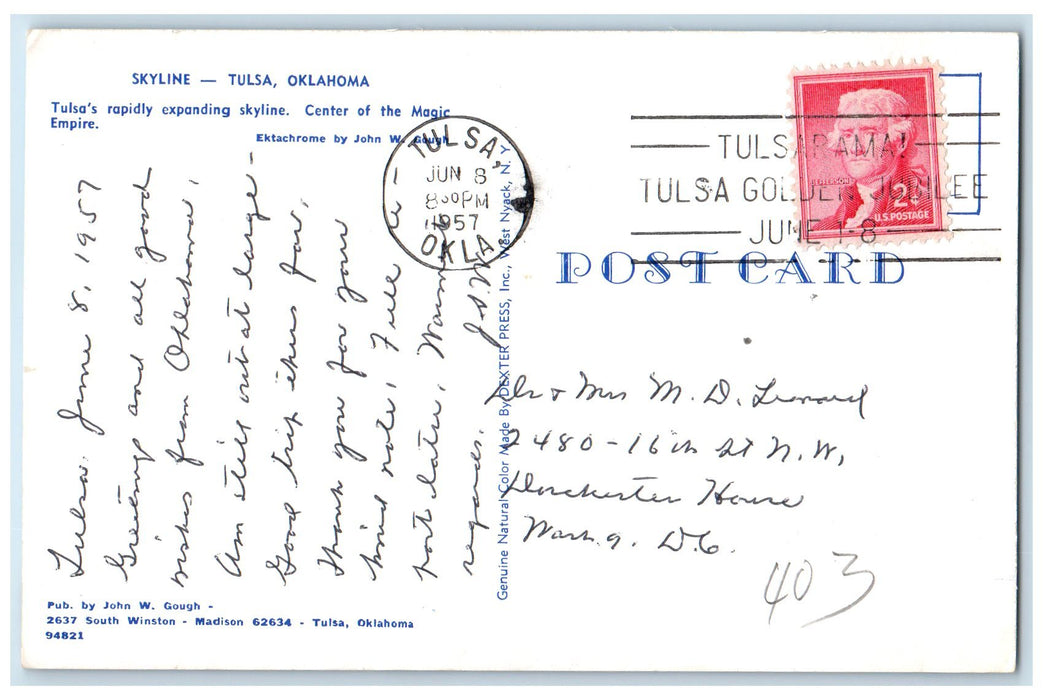 SKYLINE — TULSA, OKLAHOMA
Tulsa's rapidly expanding skyline. Center of the Magic
Empire.
Ektachrome by John W. Gough
Tulsa. June 8, 1957
Greetings and all good
wishes from Oklahoma,
Am still out at large -
Good trip thus far,
Thank you for your
kind note, Full re-
port later, Warm
regards. J.S.W.
Pub. by John W. Gough -
2637 South Winston - Madison 62634 - Tulsa, Oklahoma
94821
Genuine Natural Color Made By DEXTER PRESS, Inc., West Nyack, N. Y.
TULSA,
JUN 8
8 30 PM
1957
OKLA.
TULSARAMA!
TULSA GOLDEN JUBILEE
JUNE 1-8
JEFFERSON
2¢
U.S. POSTAGE
POST CARD
Dr & Mrs M. D. Leonard
2480-16th St N.W,
Dorchester House
Wash. 9. D.C.
403